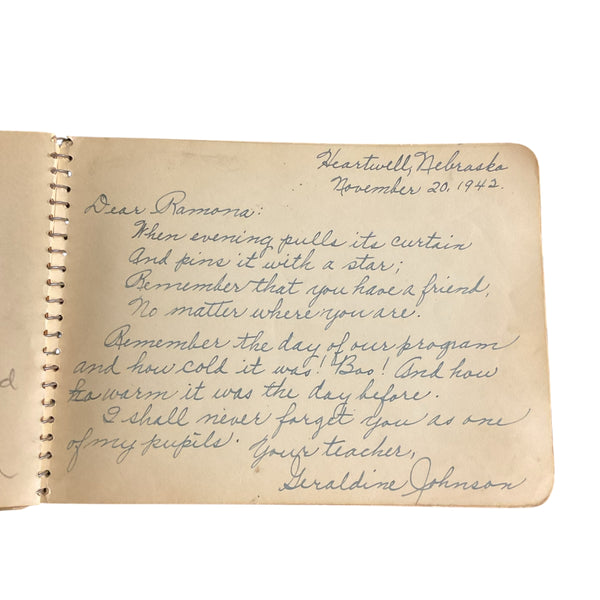 Heartwell, Nebraska
November 20, 1942.
Dear Ramona:
When evening pulls its curtain
And pins it with a star;
Remember that you have a friend,
No matter where you are.
Remember the day of our program
and how cold it was! Boo! And how
warm it was the day before.
I shall never forget you as one
of my pupils. Your teacher,
Geraldine Johnson
d